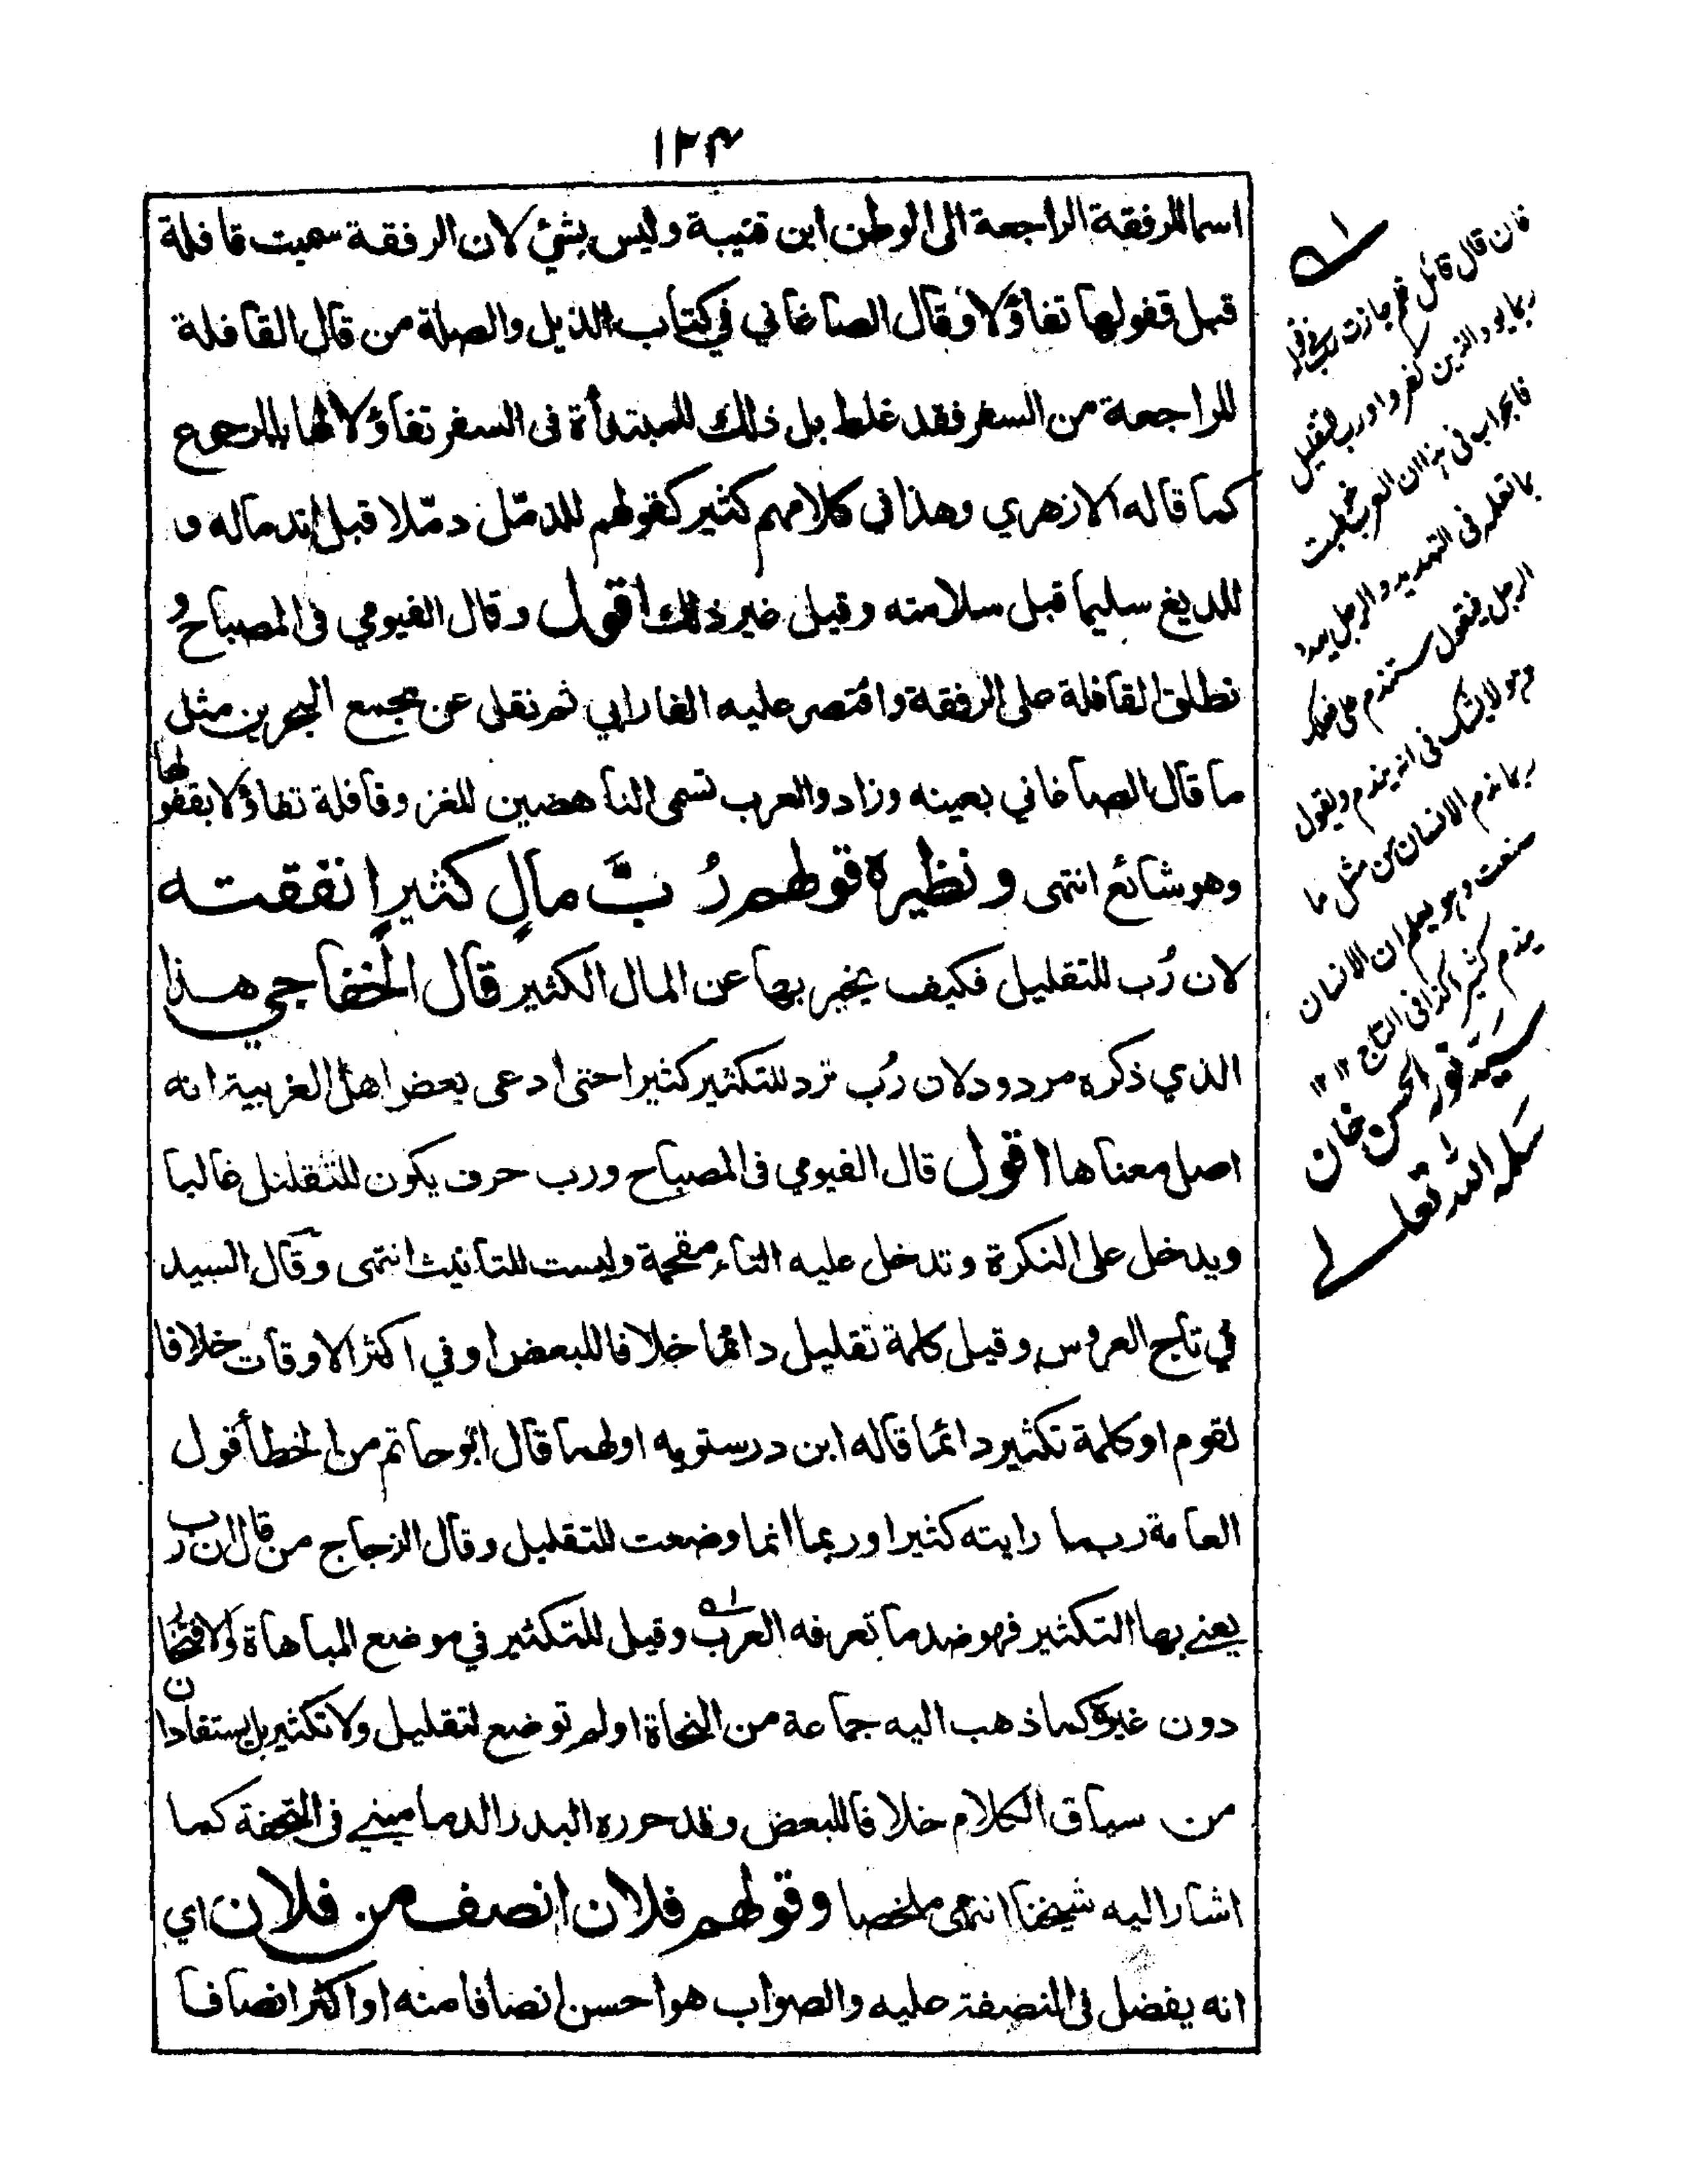 ١٢٤
اسما للرفقة الراجعة الى الوطن ابن قتيبة وليس بشئ لان الرفقة سميت قافلة
قبل قفولها تفاؤلا وقال الصاغاني في كتاب الذيل والصلة من قال القافلة
للراجعة من السفر فقد غلط بل ذلك للمبتدأة فى السفر تفاؤلا لها بالرجوع
كما قاله الازهري وهذا في كلامهم كثير كقولهم للدمّل دمّلا قبل اندماله و
للديغ سليما قبل سلامته وقيل غير ذلك اقول وقال الفيومي فى المصباح و
تطلق القافلة على الرفقة واقتصر عليه الفارابي ثم نقل عن مجمع البحرين مثل
ما قال الصاغاني بعينه وزاد والعرب تسمى الناهضين للغزو قافلة تفاؤلا بقفولها
وهو شائع انتهى ونظيره قولهم رُبَّ مالٍ كثيرٍ انفقته
لان رُب للتقليل فكيف يخبر بها عن المال الكثير قال الخفاجي هذا
الذي ذكره مردود لان رُب ترد للتكثير كثيرا حتى ادعى بعض اهل العربية انه
اصل معناها اقول قال الفيومي فى المصباح ورب حرف يكون للتقليل غالبا
ويدخل على النكرة وتدخل عليه التاء مقحمة وليست للتانيث انتهى وقال السيد
في تاج العروس وقيل كلمة تقليل دائما خلافا للبعض او في اكثر الاوقات خلافا
لقوم او كلمة تكثير دائما قاله ابن درستويه اولهما قال ابو حاتم من الخطأ قول
العامة ربما رايته كثيرا وربما انما وضعت للتقليل وقال الزجاج من قال ان رب
يعنے بها التكثير فهو ضد ما تعرفه العرب وقيل للتكثير في موضع المباهاة والافتخار
دون غيره كما ذهب اليه جماعة من النحاة او لم توضع لتقليل ولا تكثير بل يستفادان
من سياق الكلام خلافا للبعض وقد حرره البدر الدمامينے فى التحفة كما
اشار اليه شيخنا انتهى ملخصا وقولهم فلان انصف من فلان اي
انه يفضل فى النصفة عليه والصواب هو احسن انصافا منه او اكثر انصافا
فان قال قائل فلم جازت رب فى قوله
ربما يود الذين كفروا ورب للتقليل
فالجواب فى هذا ان العرب خوطبت
بما تعلمه فى التهديد والرجل يهدد
الرجل فيقول ستندم على فعلك
وهو لا يشك فى انه يندم ويقول
ربما ندم الانسان من مثل ما
صنعت وهو يعلم ان الانسان
يندم كثيرا كذا فى التاج ١٢
سيد نور الحسن خان
سلمه الله تعالے